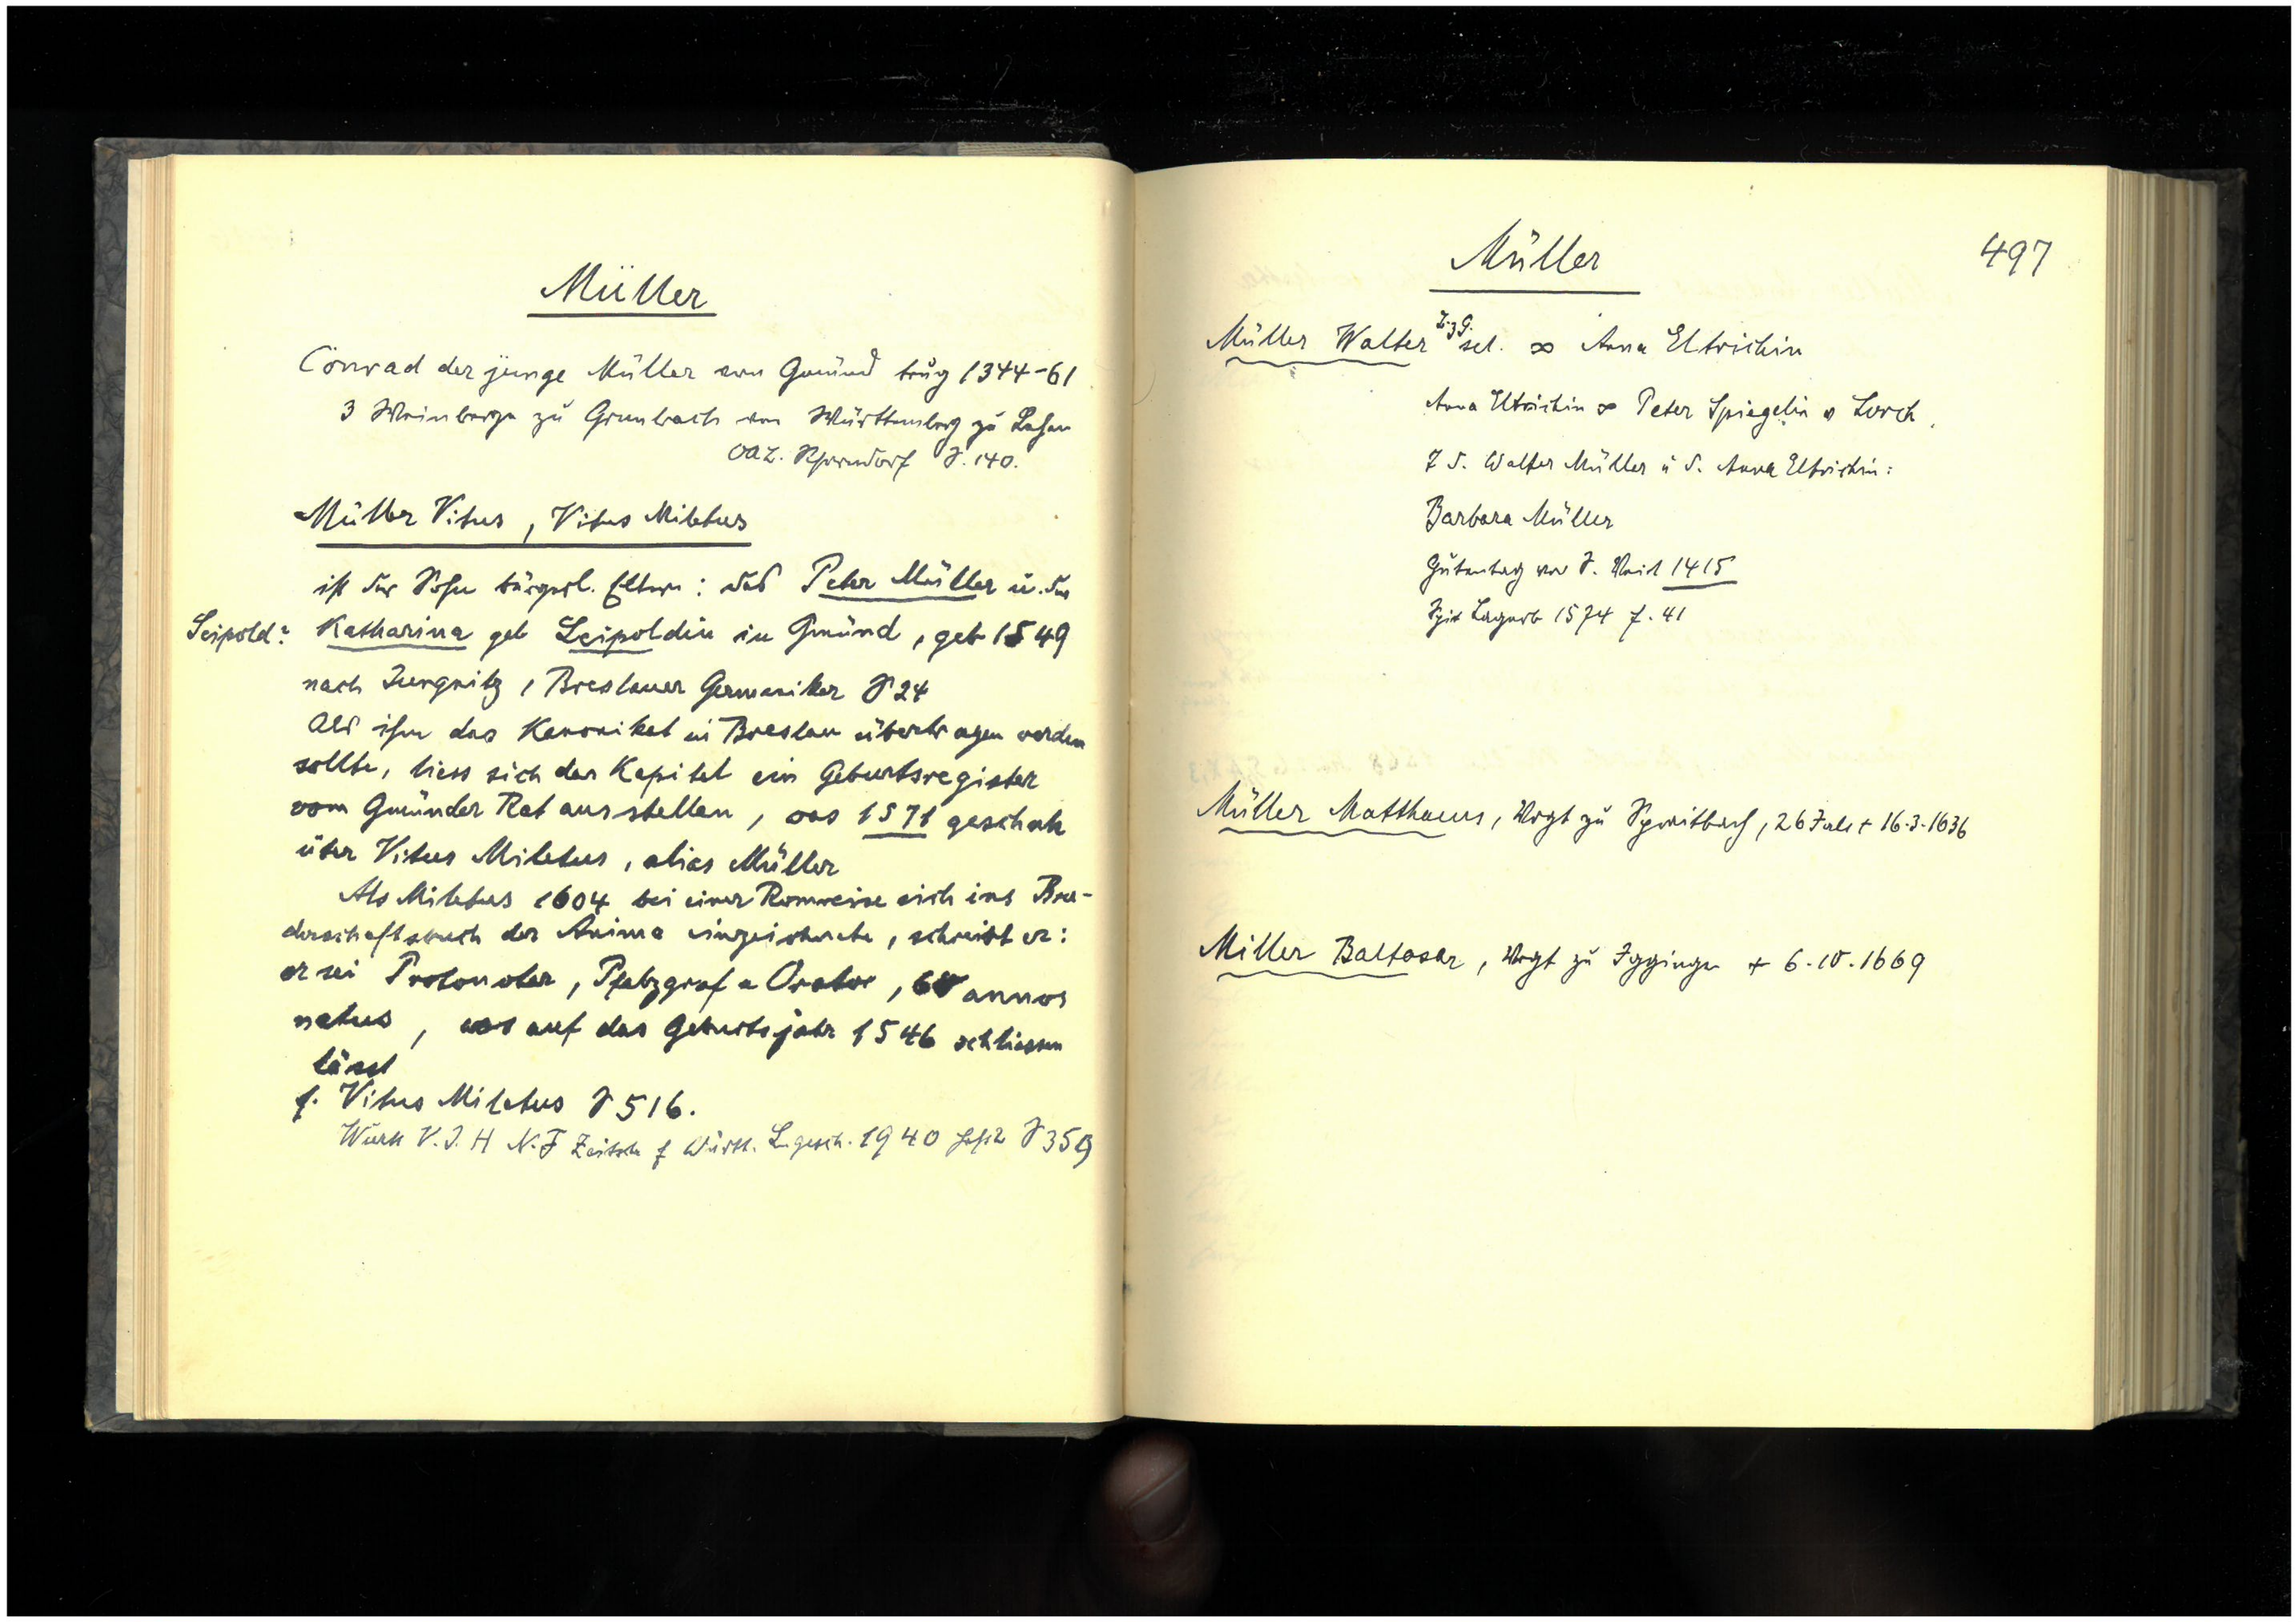 Müller
Conrad der junge Müller von Gmünd trug 1344-61
3 Weinberge zu Grunbach von Württemberg zu Lehen
OAZ. Schorndorf S. 140.
Müller Vitus, Vitus Miletus
ist der Sohn bürgerl. Eltern: des Peter Müller u. der
Leipold? Katharina geb Leipoldin in Gmünd, geb 1549
nach Jungnitz, Breslauer Germaniker S 24
Als ihm das Kanonikat in Breslau übertragen werden
sollte, liess sich das Kapitel ein Geburtsregister
vom Gmünder Rat ausstellen, was 1571 geschah
über Vitus Miletus, alias Müller
Als Miletus 1604 bei einer Romreise sich ins Bru-
derschaftsbuch der Anima einzeichnete, schreibt er:
er sei Protonotar, Pfalzgraf u Orator, annos
natus, was auf das Geburtsjahr 1546 schliessen
lässt
f. Vitus Miletus S 516.
Württ V. J. H N. F Zeitsch f Württ. L. gesch. 1940 S 359
Müller 497
Müller Walter sel. ∞ Anna Eltrichin
Anna Eltrichin ∞ Peter Spiegelin v Lorch,
T d. Walter Müller u d. Anna Eltrichin:
Barbara Müller
Gutentag vor S. Veit 1415
Spit Lagerb 1574 f. 41
Müller Matthaeus, Vogt zu Spraitbach, 26 Jahre + 16.3.1636
Miller Baltasar, Vogt zu Iggingen + 6.10.1669